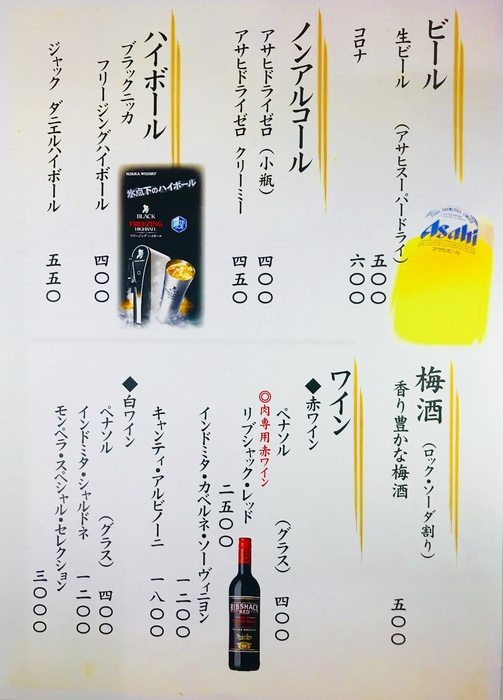 ビール
生ビール （アサヒスーパードライ） 五〇〇
コロナ 六〇〇
Asahi
アサヒビール
ノンアルコール
アサヒドライゼロ（小瓶） 四〇〇
アサヒドライゼロ クリーミー 四五〇
ハイボール
ブラックニッカ
フリージングハイボール 四〇〇
ジャック ダニエルハイボール 五五〇
NIKKA WHISKY
氷点下のハイボール
BLACK
FREEZING
HIGHBALL
梅酒（ロック・ソーダ割り）
香り豊かな梅酒 五〇〇
ワイン
◆赤ワイン
ペナソル （グラス） 四〇〇
◎肉専用赤ワイン
リブシャック・レッド 二五〇〇
インドミタ・カベルネ・ソーヴィニヨン 一二〇〇
キャンティ・アルビノーニ 一八〇〇
◆白ワイン
ペナソル （グラス） 四〇〇
インドミタ・シャルドネ 一二〇〇
モンペラ・スペシャル・セレクション 三〇〇〇
RIBSHACK
RED